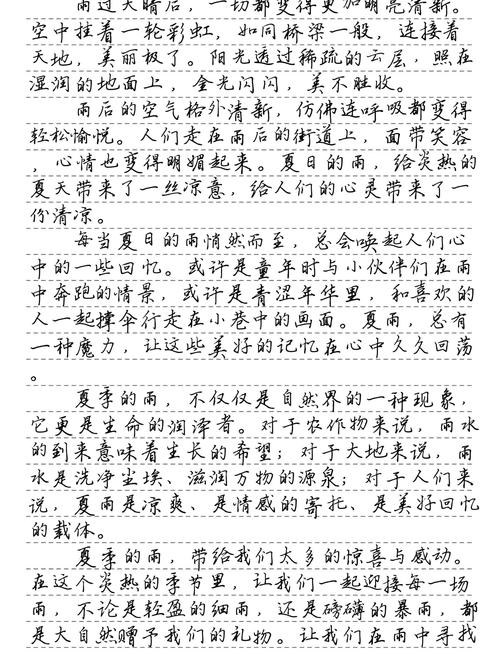 雨过天晴后，一切都变得更加明亮清新。
空中挂着一轮彩虹，如同桥梁一般，连接着
天地，美丽极了。阳光透过稀疏的云层，照在
湿润的地面上，金光闪闪，美不胜收。
雨后的空气格外清新，仿佛连呼吸都变得
轻松愉悦。人们走在雨后的街道上，面带笑容
，心情也变得明媚起来。夏日的雨，给炎热的
夏天带来了一丝凉意，给人们的心灵带来了一
份清凉。
每当夏日的雨悄然而至，总会唤起人们心
中的一些回忆。或许是童年时与小伙伴们在雨
中奔跑的情景，或许是青涩年华里，和喜欢的
人一起撑伞行走在小巷中的画面。夏雨，总有
一种魔力，让这些美好的记忆在心中久久回荡
。
夏季的雨，不仅仅是自然界的一种现象，
它更是生命的润泽者。对于农作物来说，雨水
的到来意味着生长的希望；对于大地来说，雨
水是洗净尘埃、滋润万物的源泉；对于人们来
说，夏雨是凉爽、是情感的寄托、是美好回忆
的载体。
夏季的雨，带给我们太多的惊喜与感动。
在这个炎热的季节里，让我们一起迎接每一场
雨，不论是轻盈的细雨，还是磅礴的暴雨，都
是大自然赠予我们的礼物。让我们在雨中寻找